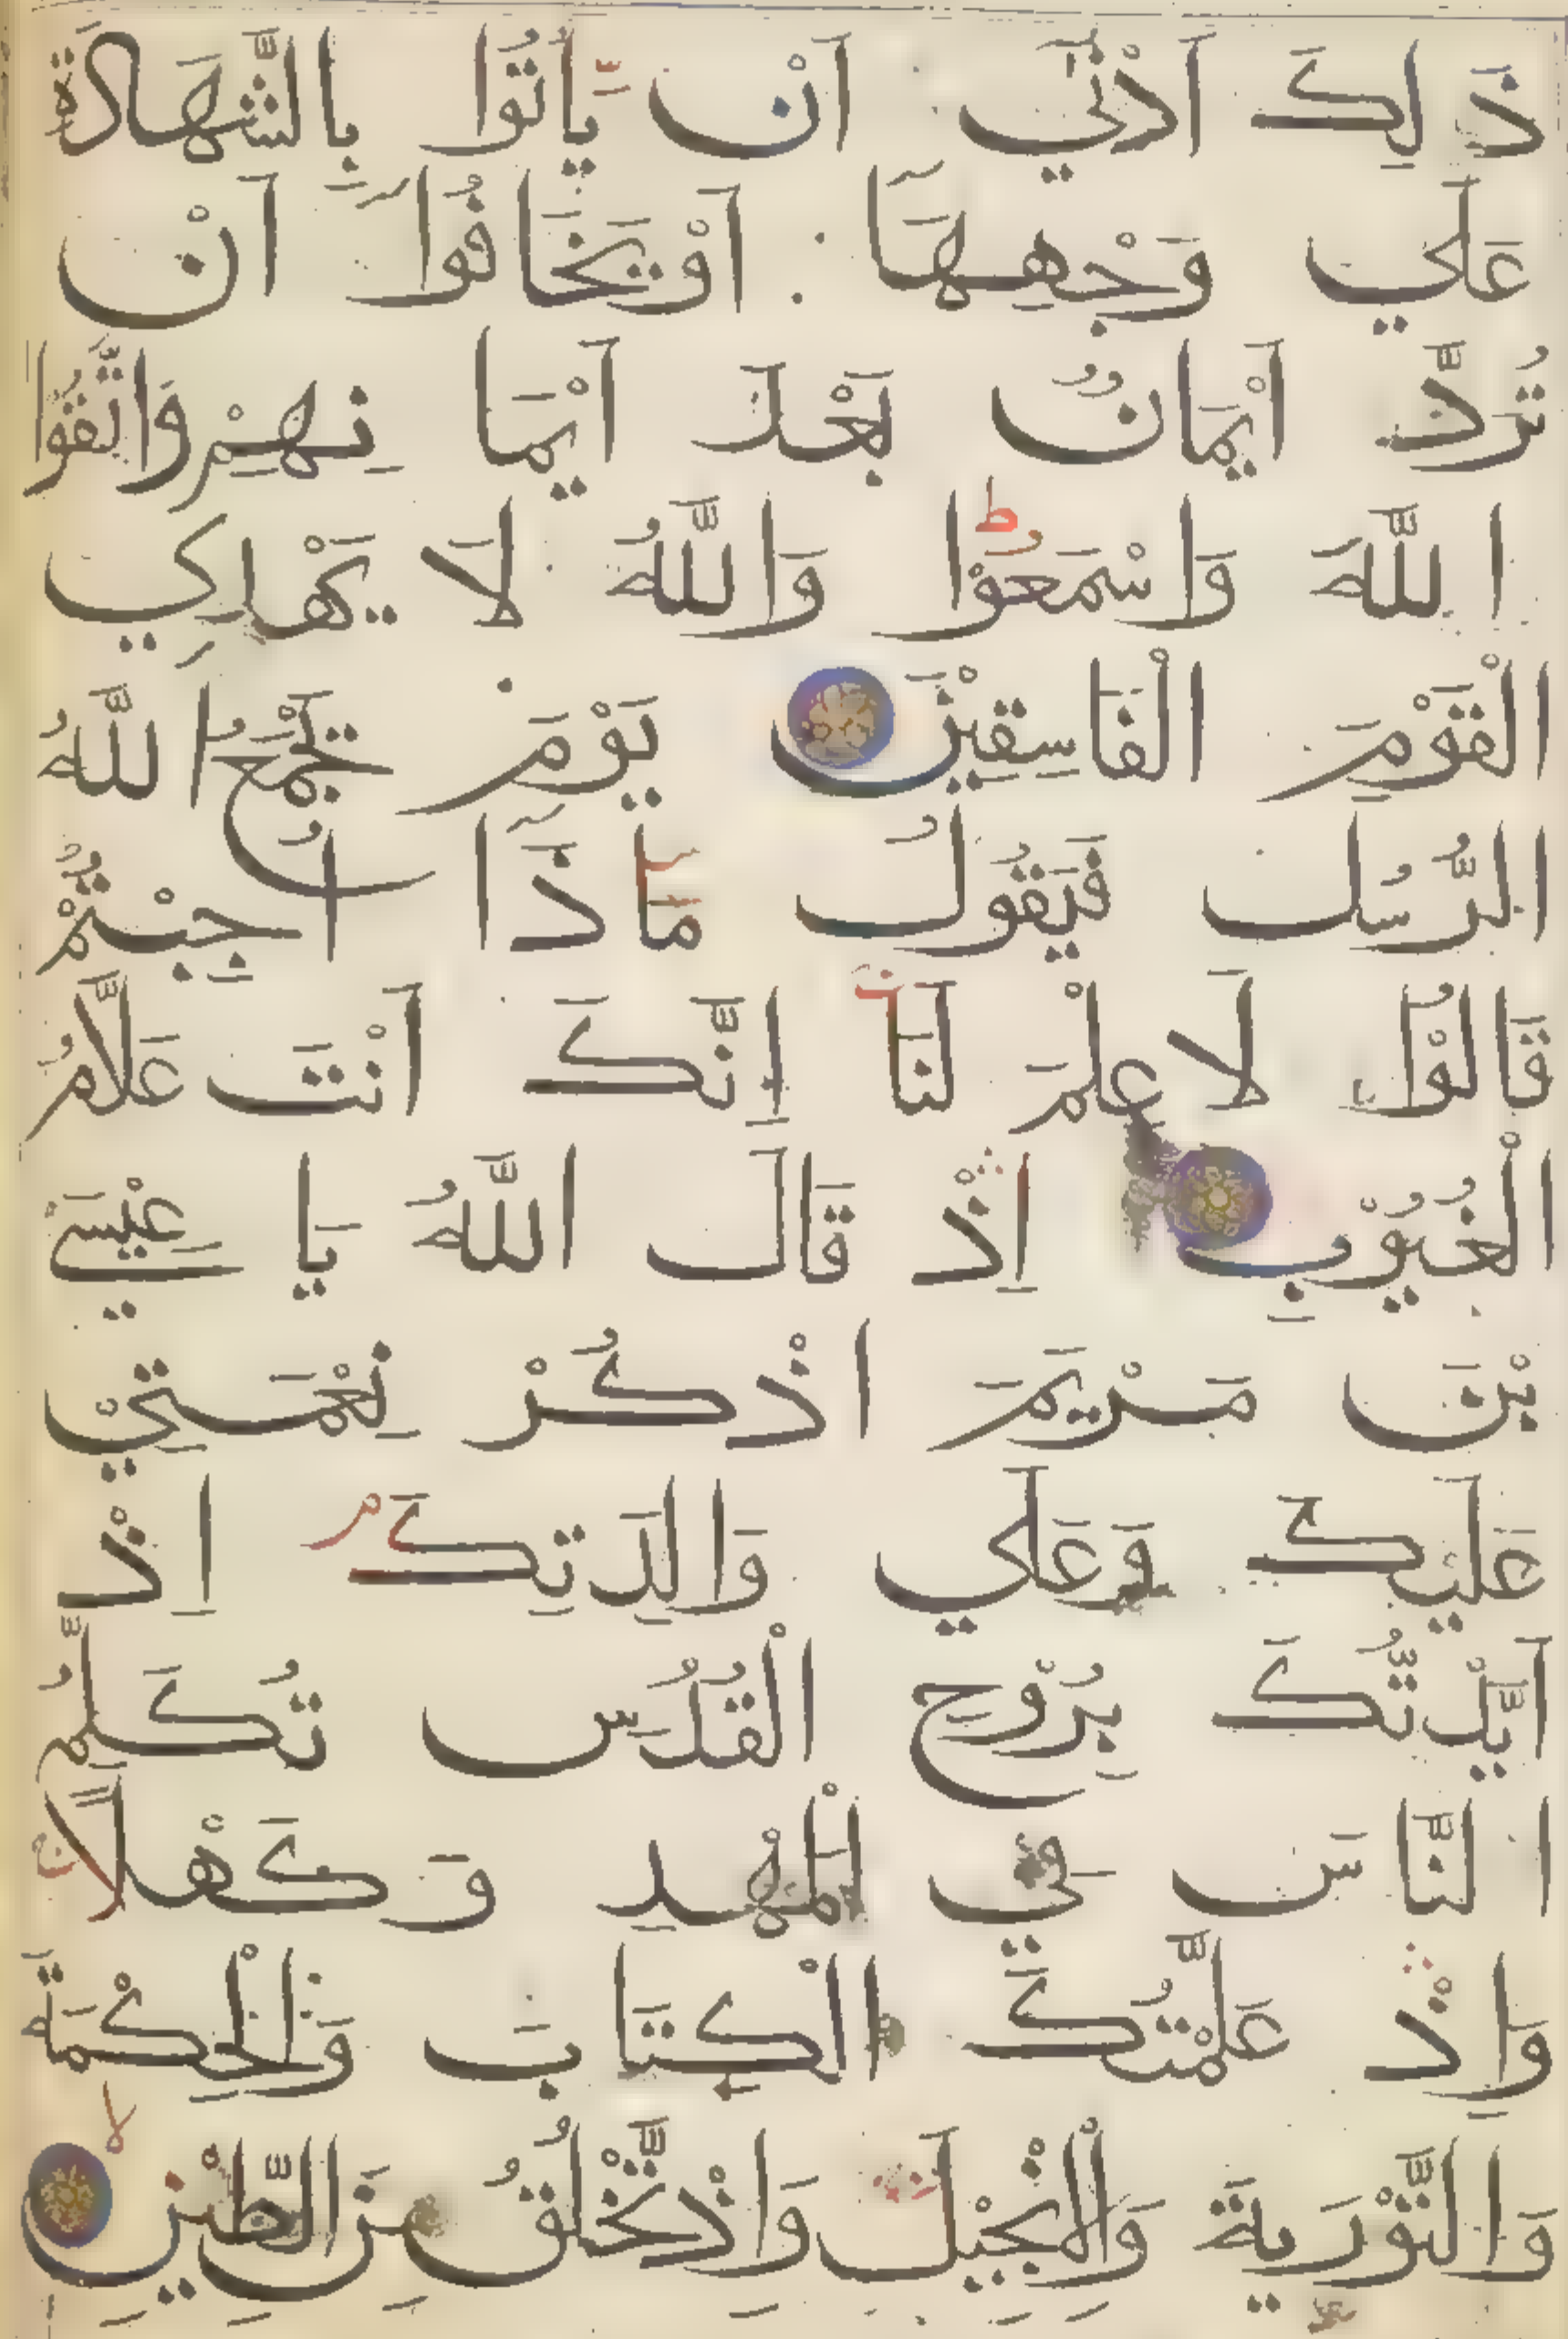 ذَ لِكَ اَدْنٰۤي اَنْ يَاْتُوْا بِالشَّهَادَةِ
عَلٰي وَجْهِهَاۤ اَوْ يَخَافُوْۤا اَنْ
تُرَدَّ اَيْمَانٌ بَعْدَ اَيْمَا نِهِمْ وَاتَّقُوا
اللّٰهَ وَاسْمَعُوْاط وَاللّٰهُ لَا يَهْدِي
الْقَوْمَ الْفَاسِقِيْنَ يَوْمَ يَجْمَعُ اللّٰهُ
الرُّسُلَ فَيَقُوْلُ مَا ذَاۤ اُجِبْتُمْ
قَالُوْا لَا عِلْمَ لَنَا اِنَّكَ اَنْتَ عَلَّامُ
الْغُيُوْبِ اِذْ قَالَ اللّٰهُ يَا عِيْسَي
بْنَ مَرْيَمَ اذْكُرْ نِعْمَتِيْ
عَلَيْكَ وَعَلٰي وَالِدَتِكَ م اِذْ
اَيَّدْتُّكَ بِرُوْحِ الْقُدُسِ تُكَلِّمُ
النَّاسَ فِي الْمَهْدِ وَ كَهْلًا
وَاِذْ عَلَّمْتُكَ الْكِتَابَ وَالْحِكْمَةَ
وَالتَّوْرٰيةَ وَالْاِنْجِيْلَ وَاِذْ تَخْلُقُ مِنَ الطِّيْنِ لا